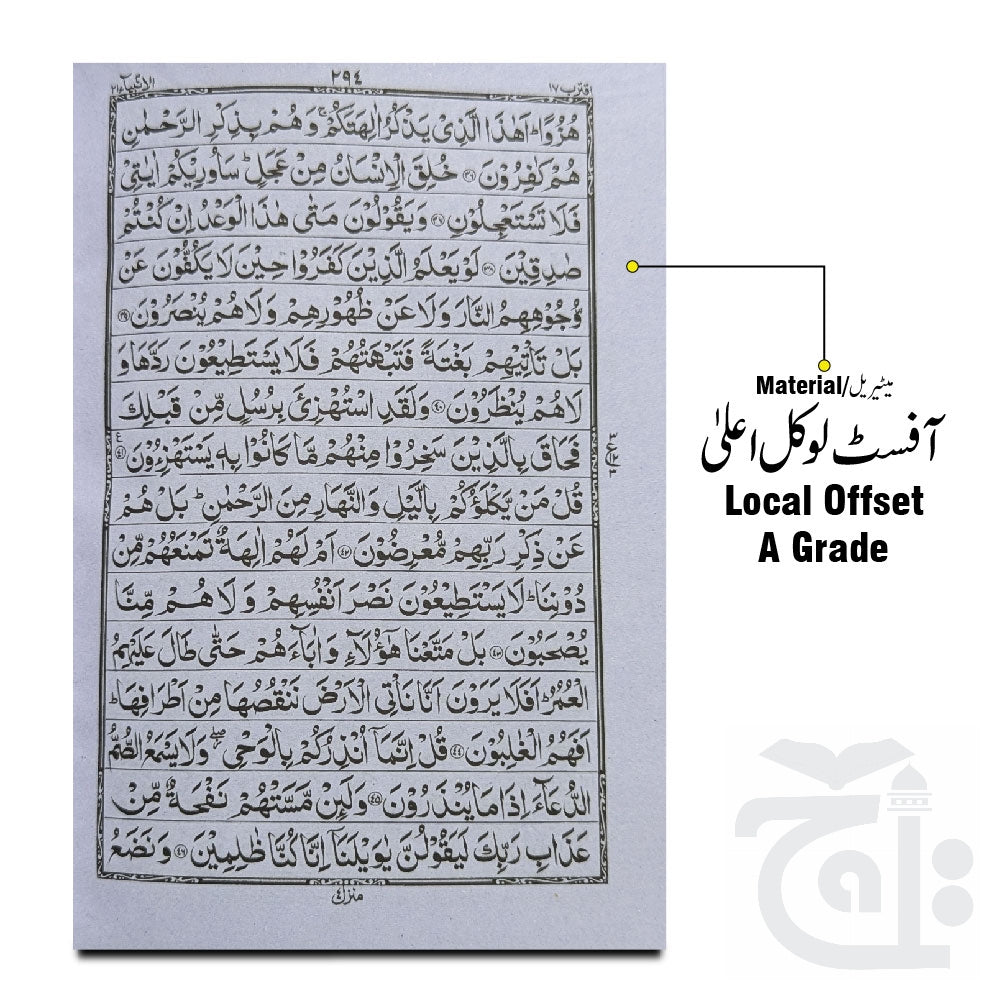 اقترب ١٧
٢٩٤
الانبیآء ٢١
هُزُوًا ؕ اَهٰذَا الَّذِیْ یَذْكُرُ اٰلِهَتَكُمْ ۚ وَ هُمْ بِذِكْرِ الرَّحْمٰنِ
هُمْ كٰفِرُوْنَ ﴿۳۶﴾ خُلِقَ الْاِنْسَانُ مِنْ عَجَلٍ ؕ سَاُورِیْكُمْ اٰیٰتِیْ
فَلَا تَسْتَعْجِلُوْنِ ﴿۳۷﴾ وَ یَقُوْلُوْنَ مَتٰى هٰذَا الْوَعْدُ اِنْ كُنْتُمْ
صٰدِقِیْنَ ﴿۳۸﴾ لَوْ یَعْلَمُ الَّذِیْنَ كَفَرُوْا حِیْنَ لَا یَكُفُّوْنَ عَنْ
وُّجُوْهِهِمُ النَّارَ وَ لَا عَنْ ظُهُوْرِهِمْ وَ لَا هُمْ یُنْصَرُوْنَ ﴿۳۹﴾
بَلْ تَاْتِیْهِمْ بَغْتَةً فَتَبْهَتُهُمْ فَلَا یَسْتَطِیْعُوْنَ رَدَّهَا وَ
لَا هُمْ یُنْظَرُوْنَ ﴿۴۰﴾ وَ لَقَدِ اسْتُهْزِئَ بِرُسُلٍ مِّنْ قَبْلِكَ
فَحَاقَ بِالَّذِیْنَ سَخِرُوْا مِنْهُمْ مَّا كَانُوْا بِهٖ یَسْتَهْزِءُوْنَ ﴿۴۱﴾
قُلْ مَنْ یَّكْلَؤُكُمْ بِالَّیْلِ وَ النَّهَارِ مِنَ الرَّحْمٰنِ ؕ بَلْ هُمْ
عَنْ ذِكْرِ رَبِّهِمْ مُّعْرِضُوْنَ ﴿۴۲﴾ اَمْ لَهُمْ اٰلِهَةٌ تَمْنَعُهُمْ مِّنْ
دُوْنِنَا ؕ لَا یَسْتَطِیْعُوْنَ نَصْرَ اَنْفُسِهِمْ وَ لَا هُمْ مِّنَّا
یُصْحَبُوْنَ ﴿۴۳﴾ بَلْ مَتَّعْنَا هٰۤؤُلَآءِ وَ اٰبَآءَهُمْ حَتّٰى طَالَ عَلَیْهِمُ
الْعُمُرُ ؕ اَفَلَا یَرَوْنَ اَنَّا نَاْتِی الْاَرْضَ نَنْقُصُهَا مِنْ اَطْرَافِهَا ؕ
اَفَهُمُ الْغٰلِبُوْنَ ﴿۴۴﴾ قُلْ اِنَّمَاۤ اُنْذِرُكُمْ بِالْوَحْیِ ۖ وَ لَا یَسْمَعُ الصُّمُّ
الدُّعَآءَ اِذَا مَا یُنْذَرُوْنَ ﴿۴۵﴾ وَ لَىِٕنْ مَّسَّتْهُمْ نَفْحَةٌ مِّنْ
عَذَابِ رَبِّكَ لَیَقُوْلُنَّ یٰوَیْلَنَاۤ اِنَّا كُنَّا ظٰلِمِیْنَ ﴿۴۶﴾ وَ نَضَعُ
منزل ٤
Material/میٹیریل
آفسٹ لوکل اعلیٰ
Local Offset
A Grade